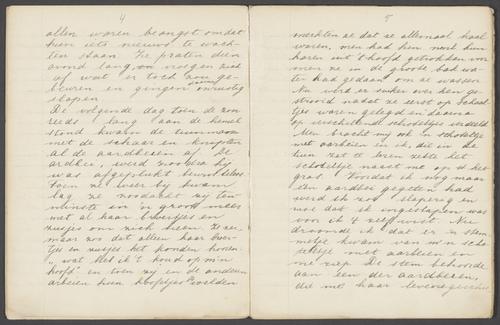 4
allen waren beangst omdat
hun iets nieuws te wach-
ten staan. Ze praten dien
avond lang, en vroegen zich
af wat er toch zou ge-
beuren en gingen onrustig
slapen
De volgende dag toen de zon
reeds lang aan de hemel
stond kwam de tuinman
met de schaar en knipten
al de aardbeien af. De
aardbei, werd zoodra hij
was afgeplukt bewusteloos
toen ze weer bij kwam
lag ze noodacht zij ten
minste in 'n groot nest
met al haar broertjes en
zusjes om zich heen. Ze zei
maar zoo dat alleen haar broer-
tjes en zusjes het konden hooren
"wat heb ik 't koud op m'n
hoofd" en toen zij en de anderen
aardbeien hun kopjes voelden
5
merkten ze dat ze allemaal kaal
waren, men had hun mooie kuif
haren uit 't hoofd getrokken voor
men ze in 'n groote bak wa-
ter had gedaan om ze te wasschen
Nu werd er suiker over hen ge-
strooid nadat ze eerst op schaal-
tjes waren gelegd en daarna
op verschillende schoteltjes verdeeld
Men bracht mij ook 'n schoteltje
met aardbeien en ik, die in de
tuin zat te lezen zette het
schoteltje naast me op 't
gras. Voordat ik nog maar
een aardbei gegeten had
werd ik zoo slaperig en
voor dat ik ingeslapen was
voor ik 't zelf wist. Nu
droomde ik dat er 'n stem
metje kwam van m'n scho
teltje met aardbeien en
me riep. De stem behoorde
aan een der aardbeien,
die met haar levensgeschie